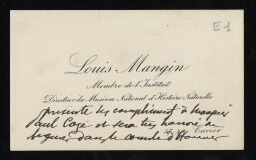 E1
Louis Mangin
Membre de l'Institut
Directeur du Muséum National d'Histoire Naturelle
présente ses compliments à Monsieur
Paul et sera très honoré de
dans le comité d'Honneur
Cuvier